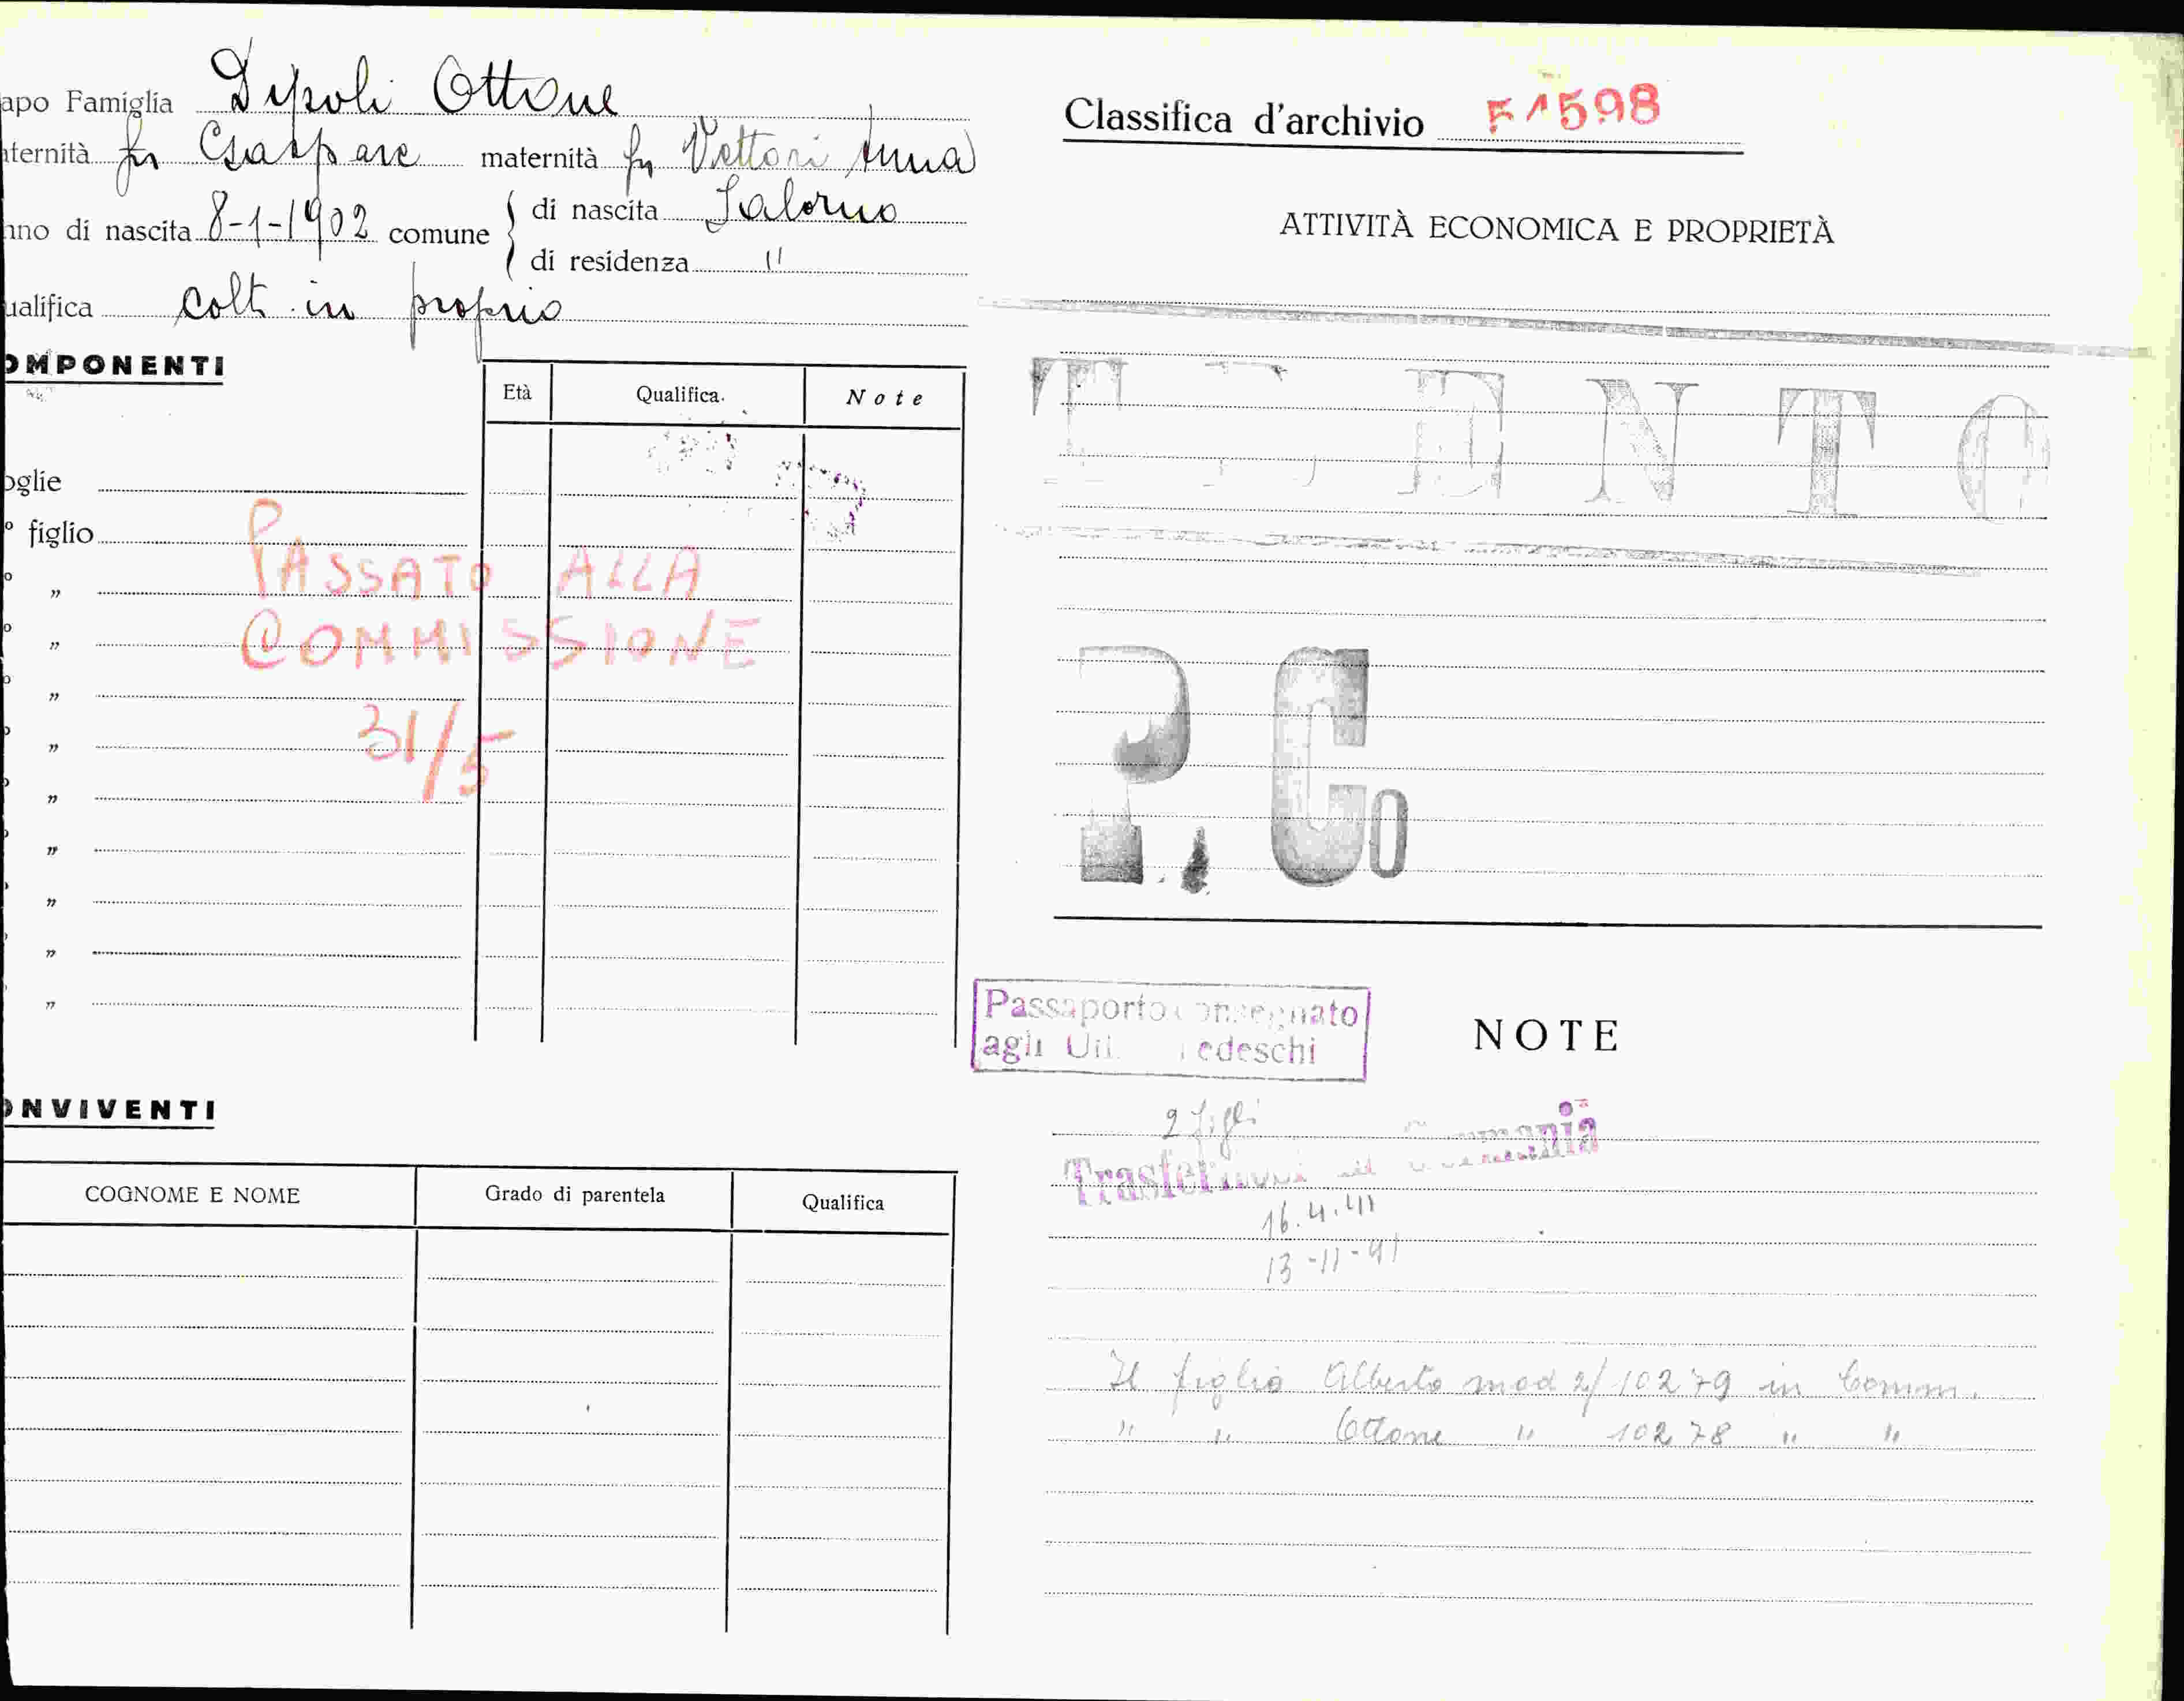 apo Famiglia Dipoli Ottone
aternità fu Gaspare maternità fu Vettori Anna
nno di nascita 8-1-1902 comune di nascita Salorno
di residenza "
ualifica colt. in proprio
OMPONENTI
Età Qualifica. Note
oglie
º figlio
º "
º "
º "
"
"
"
"
"
"
PASSATO ALLA
COMMISSIONE
31/5
ONVIVENTI
COGNOME E NOME Grado di parentela Qualifica
Classifica d'archivio 51598
ATTIVITÀ ECONOMICA E PROPRIETÀ
ENTO
P. Co
Passaporto consegnato
agli Uff. Tedeschi
NOTE
2 figli
Trasferitosi in Germania
16.4.41
13-11-41
Il figlio Alberto mod 2/10279 in Comm.
" " Ottone " 10278 " "